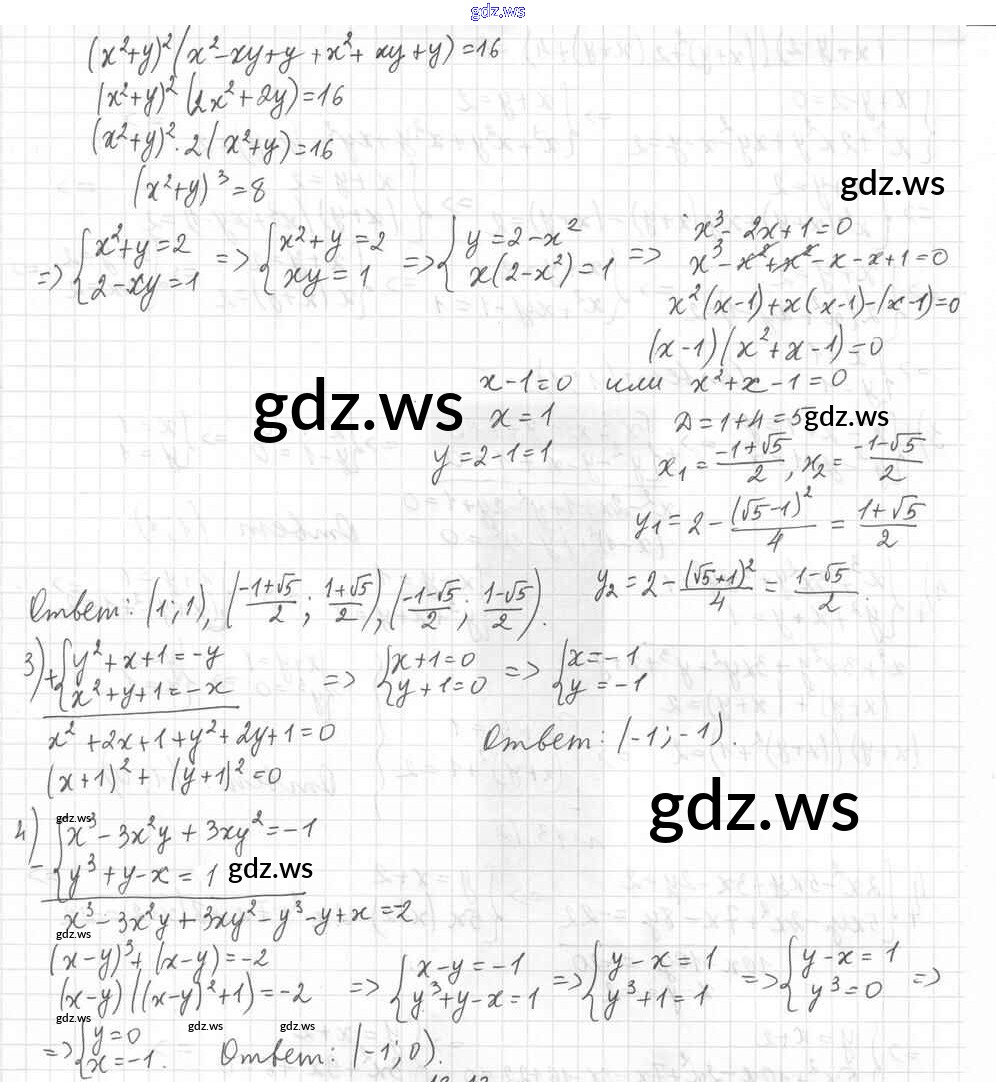 gdz.ws
(x²+y)²(x²-xy+y+x²+xy+y)=16
(x²+y)²(2x²+2y)=16
(x²+y)²·2(x²+y)=16
(x²+y)³=8
gdz.ws
=> {x²+y=2 => {x²+y=2 => {y=2-x² => x³-2x+1=0
{2-xy=1 {xy=1 {x(2-x²)=1 x³-x²+x²-x-x+1=0
x²(x-1)+x(x-1)-(x-1)=0
(x-1)(x²+x-1)=0
gdz.ws
x-1=0 или x²+x-1=0
x=1 D=1+4=5 gdz.ws
y=2-1=1 x₁=(-1+√5)/2, x₂=(-1-√5)/2
y₁=2-(√5-1)²/4=(1+√5)/2
y₂=2-(√5+1)²/4=(1-√5)/2.
Ответ: (1;1), ((-1+√5)/2; (1+√5)/2), ((-1-√5)/2; (1-√5)/2).
3) +{y²+x+1=-y => {x+1=0 => {x=-1
{x²+y+1=-x {y+1=0 {y=-1
x²+2x+1+y²+2y+1=0
Ответ: (-1;-1).
(x+1)²+(y+1)²=0
gdz.ws
gdz.ws
4) -{x³-3x²y+3xy²=-1
{y³+y-x=1 gdz.ws
x³-3x²y+3xy²-y³-y+x=-2
gdz.ws
(x-y)³+(x-y)=-2
(x-y)((x-y)²+1)=-2 => {x-y=-1 => {y-x=1 => {y-x=1 =>
{y³+y-x=1 {y³+1=1 {y³=0
gdz.ws
gdz.ws
gdz.ws
=> {y=0
{x=-1. Ответ: (-1;0).